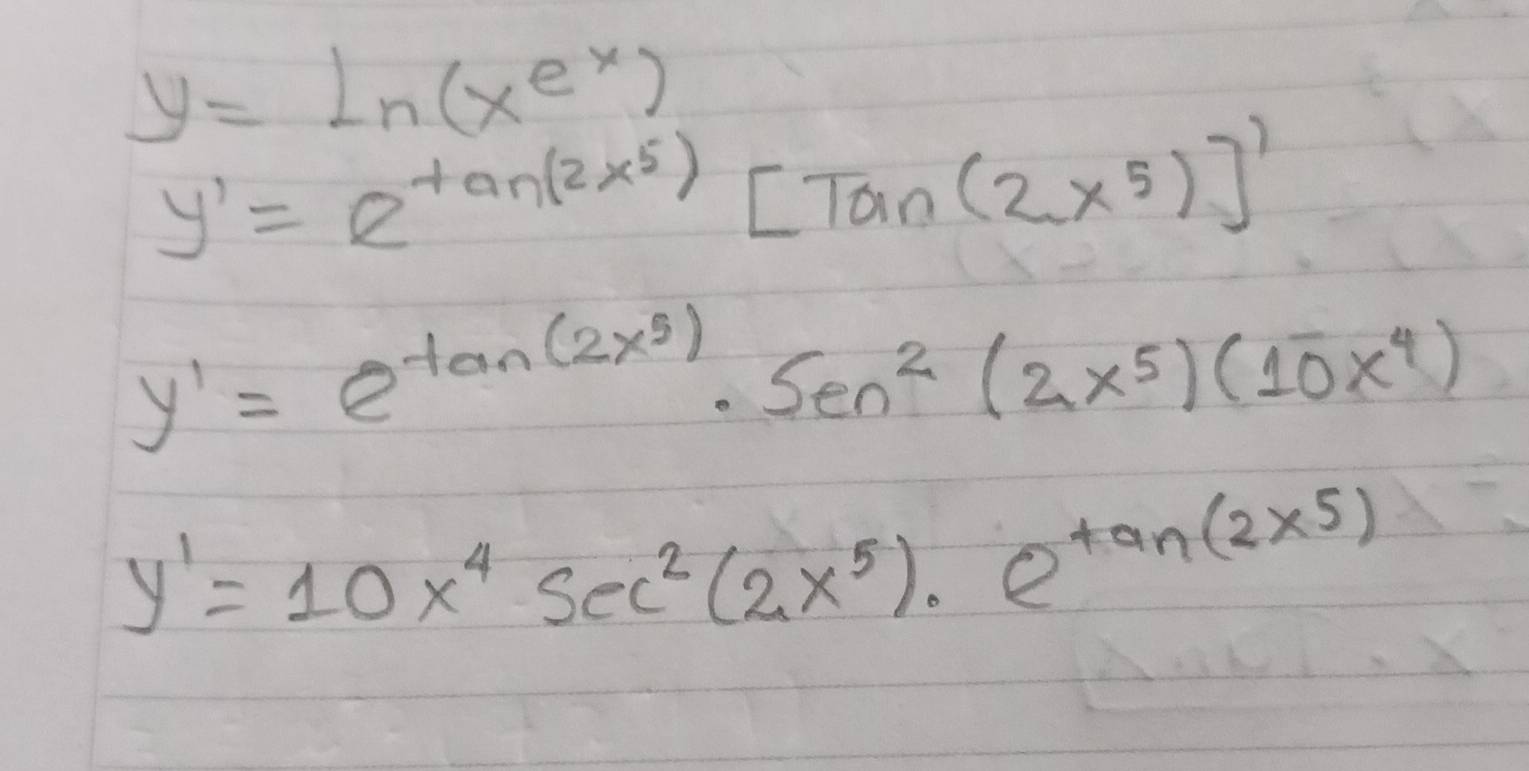 y = Ln(x^e^x)
y' = e^tan(2x^5) [Tan(2x^5)]'
y' = e^tan(2x^5) . Sen^2 (2x^5)(10x^4)
y' = 10x^4 Sec^2(2x^5). e^tan(2x^5)